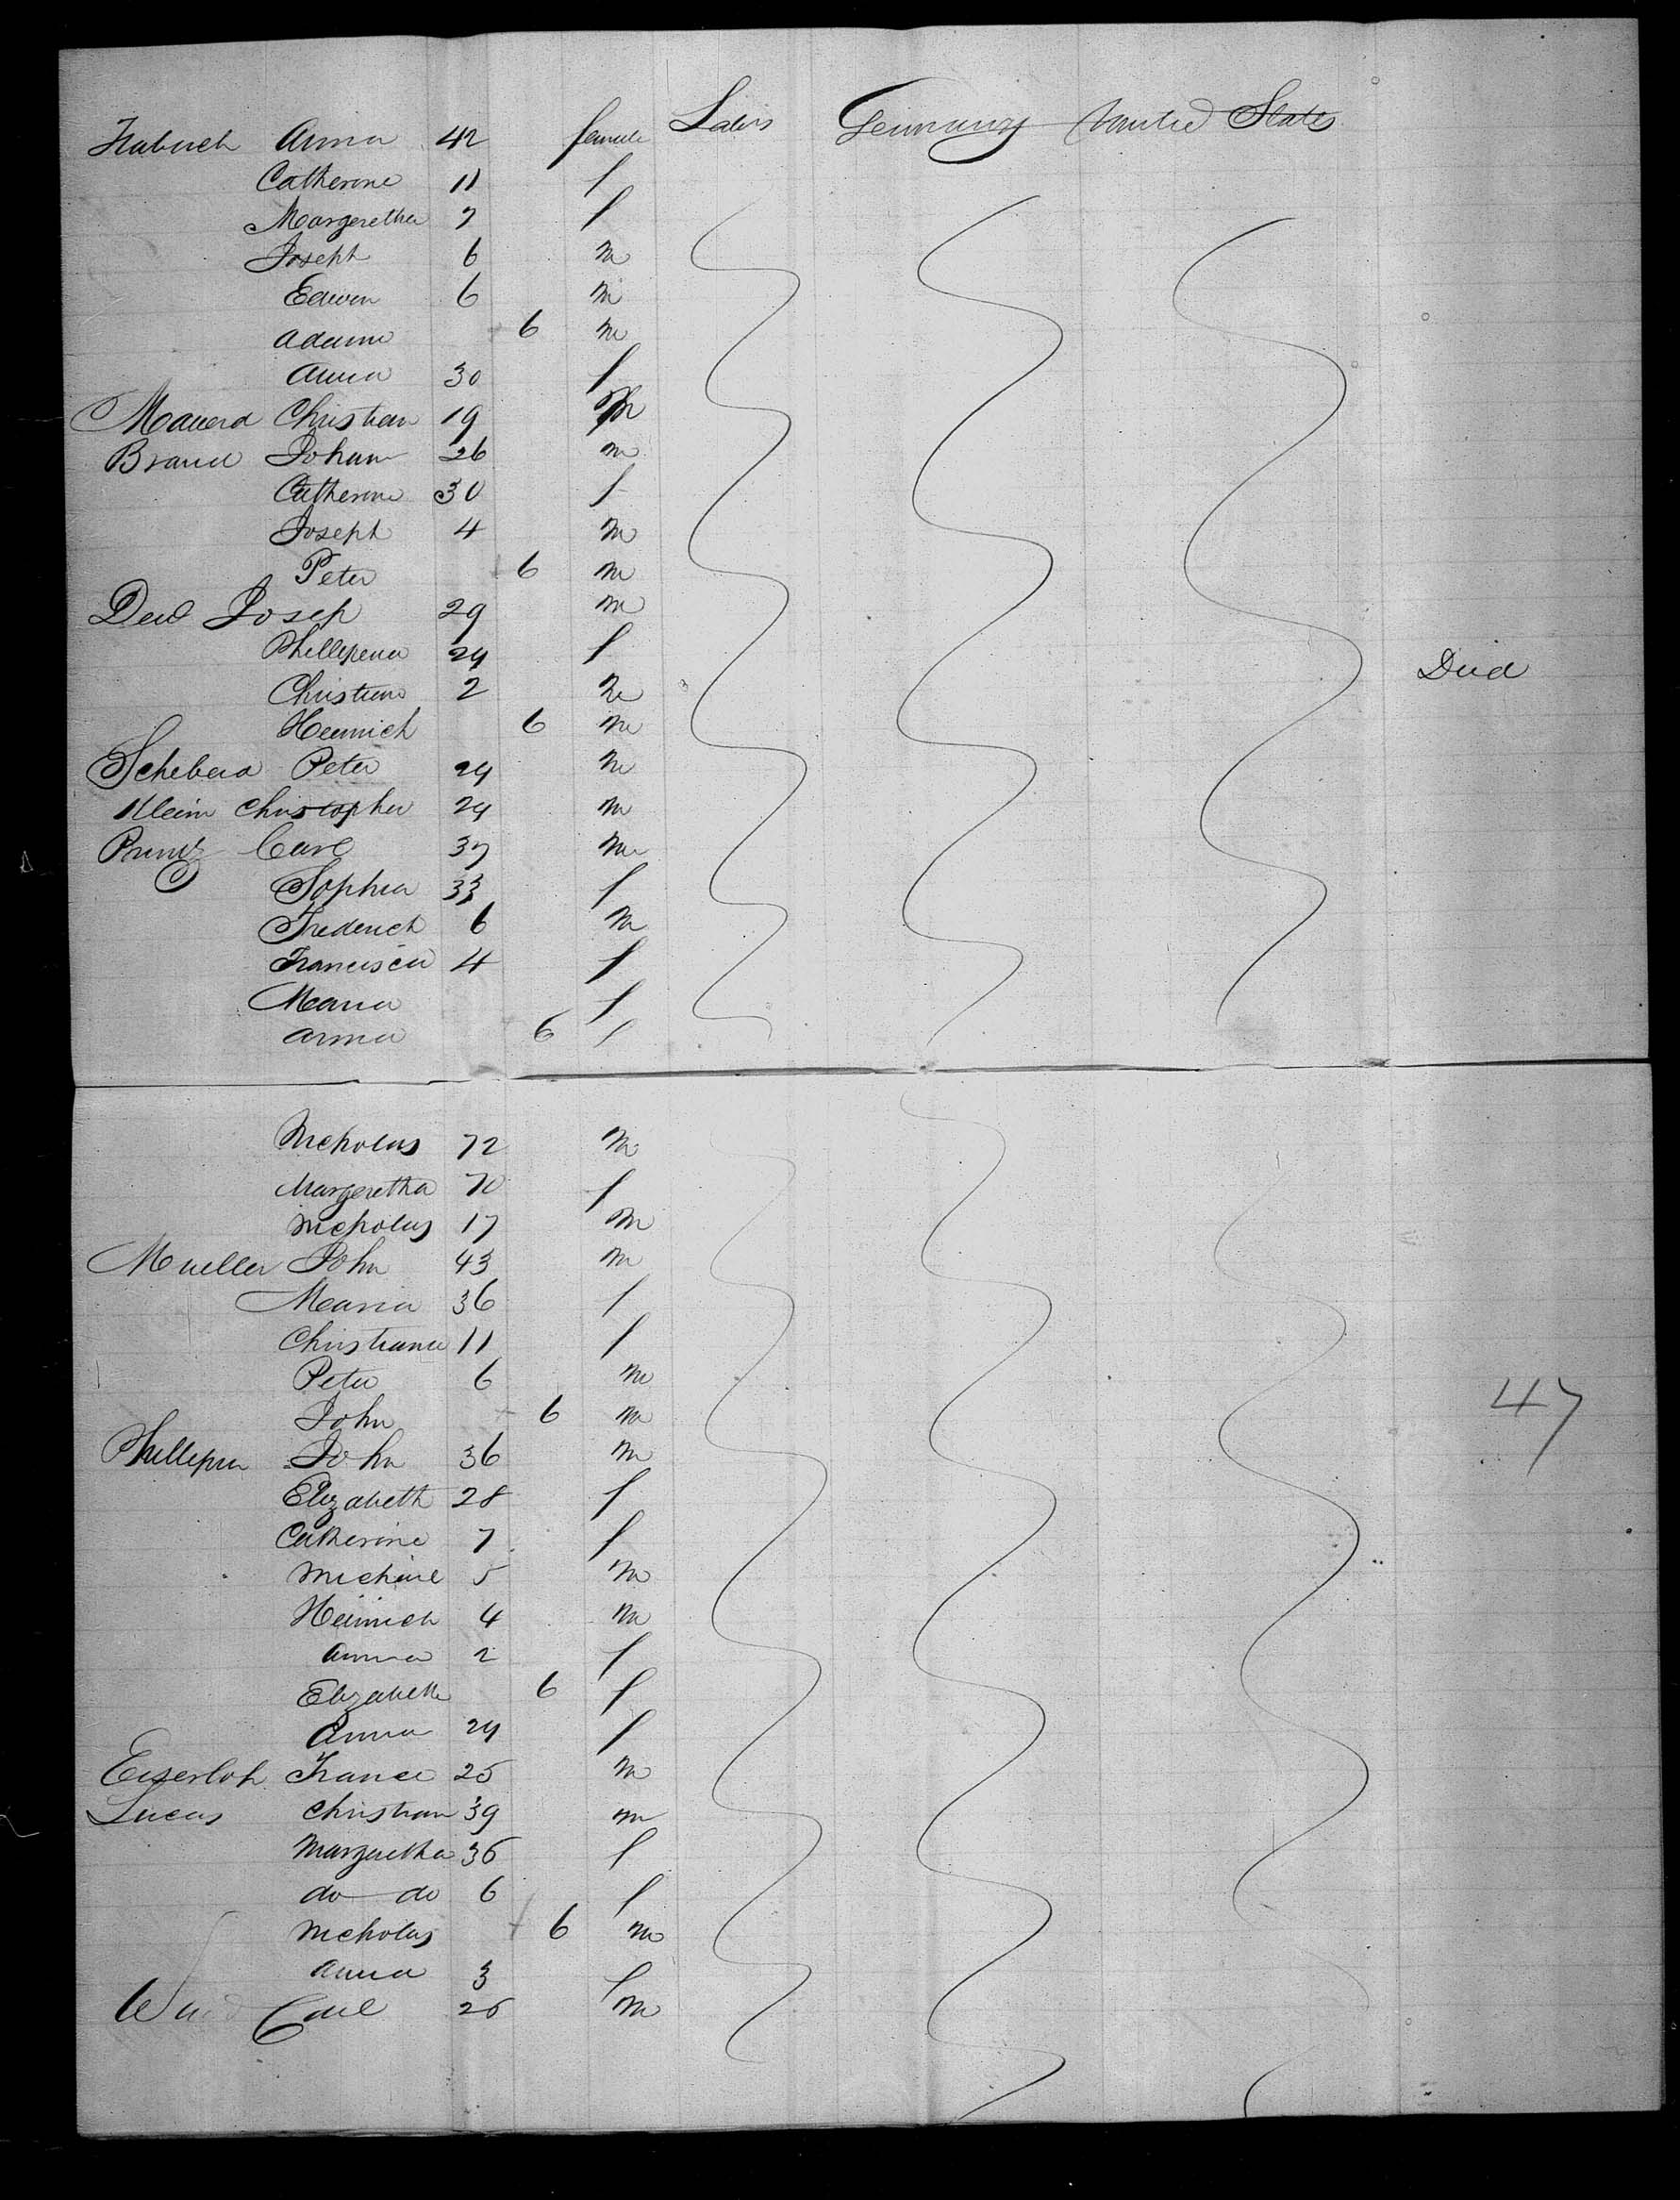 Habuch Anna 42 female Labrs Germany United States
Catherine 11 f
Margeretha 7 f
Joseph 6 m
Edwin 6 m
Adam 6 m
Anna 30 f
Christian 19 m
Brand Johann 26 m
Catherine 30 f
Joseph 4 m
Peter 6 m
Deul Josep 29 m
Phillepena 24 f Died
Christian 2 m
Heinrich 6 m
Scheberd Peter 24 m
Klein Christopher 24 m
Prinz Carl 37 m
Sophia 33 f
Frederich 6 m
Francisca 4 f
Maria f
Anna 6 f
Nicholas 72 m
Margeretha 70 f
Nicholas 17 m
Mueller John 43 m
Maria 36 f
Christiana 11 f
Peter 6 m
John 6 m
47
Phillepin John 36 m
Elizabeth 28 f
Catherine 7 f
Michael 5 m
Heinrich 4 m
Anna 2 f
Elizabeth 6 f
Anna 24 f
Eiserloh Franc 25 m
Lucas Christian 39 m
Margaretha 36 f
do do 6 f
Nicholas 6 m
Anna 3 f
Carl 26 m